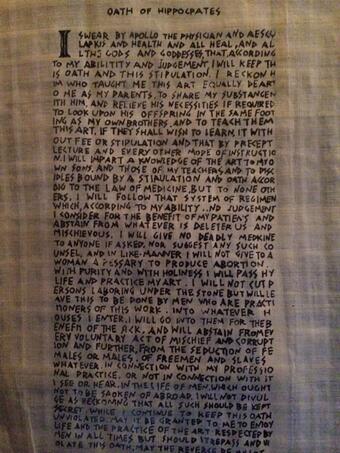 OATH OF HIPPOCPATES
I SWEAR BY APOLLO THE PHYSICIAN AND AESCU
LAPIUS AND HEALTH AND ALL HEAL, AND AL
L THE GODS AND GODDESSES, THAT, ACCORDING
TO MY ABILITITY AND JUDGEMENT, I WILL KEEP TH
IS OATH AND THIS STIPULATION. I RECKON H
IM WHO TAUGHT ME THIS ART EQUALLY DEAR T
O ME AS MY PARENTS, TO SHARE MY SUBSTANCE W
ITH HIM, AND RELIEVE HIS NECESSITIES IF REQUIRED
TO LOOK UPON HIS OFFSPRING IN THE SAME FOOT
ING AS MY OWN BROTHERS, AND TO TEACH THEM
THIS ART, IF THEY SHALL WISH TO LEARN IT WITH
OUT FEE OR STIPULATION AND THAT BY PRECEPT
LECTURE AND EVERY OTHER MODE OF INSTRUCTIO
N. I WILL IMPART A KNOWLEDGE OF THE ART TO MY O
WN SONS, AND THOSE OF MY TEACHERS, AND TO DISC
IPLES BOUND BY A STIPULATION AND OATH ACCOR
DIG TO THE LAW OF MEDICINE, BUT TO NONE OTH
ERS, I WILL FOLLOW THAT SYSTEM OF REGIMEN
WHICH, ACCORDING TO MY ABILITY ..ND JUDGEMENT
I CONSIDER FOR THE BENEFIT OF MY PATIENTS AND
ABSTAIN FROM WHATEVER IS DELETERIUS AND
MISCHIEVOUS, I WILL GIVE NO DEADLY MEDICINE
TO ANYONE IF ASKED, NOR SUGGEST ANY SUCH CO
UNSEL, AND IN LIKE MANNER I WILL NOT GIVE TO A
WOMAN A PESSARY TO PRODUCE ABORTION
WITH PURITY AND WITH HOLINESS I WILL PASS MY
LIFE AND PRACTICE MY ART. I WILL NOT CUT P
ERSONS LABORING UNDER THE STONE BUT WILL LE
AVE THIS TO BE DONE BY MEN WHO ARE PRACTI
TIONERS OF THIS WORK. INTO WHATEVER H
OUSES I ENTER, I WILL GO INTO THEM FOR THE B
ENEFIT OF THE SICK, AND WILL ABSTAIN FROM EV
ERY VOLUNTARY ACT OF MISCHIEF AND CORRUPT
ION AND FURTHER, FROM THE SEDUCTION OF FE
MALES OR MALES, OF FREEMEN AND SLAVES
WHATEVER IN CONNECTION WITH MY PROFESSIO
NAL PRACTICE OR NOT IN CONNECTION WITH IT
I SEE OR HEAR, IN THE LIFE OF MEN, WHICH OUGHT
NOT TO BE SPOKEN OF ABROAD, I WILL NOT DIVUL
GE AS RECKONING THAT ALL SUCH SHOULD BE KEPT
SECRET WHILE I CONTINUE TO KEEP THIS OATH
UNVIOLATED, MAY IT BE GRANTED TO ME TO ENJOY
LIFE AND THE PRACTICE OF THE ART RESPECTED BY
MEN IN ALL TIMES BUT SHOULD I TREPASS AND VI
OLATE THIS OATH, MAY THE REVERSE BE